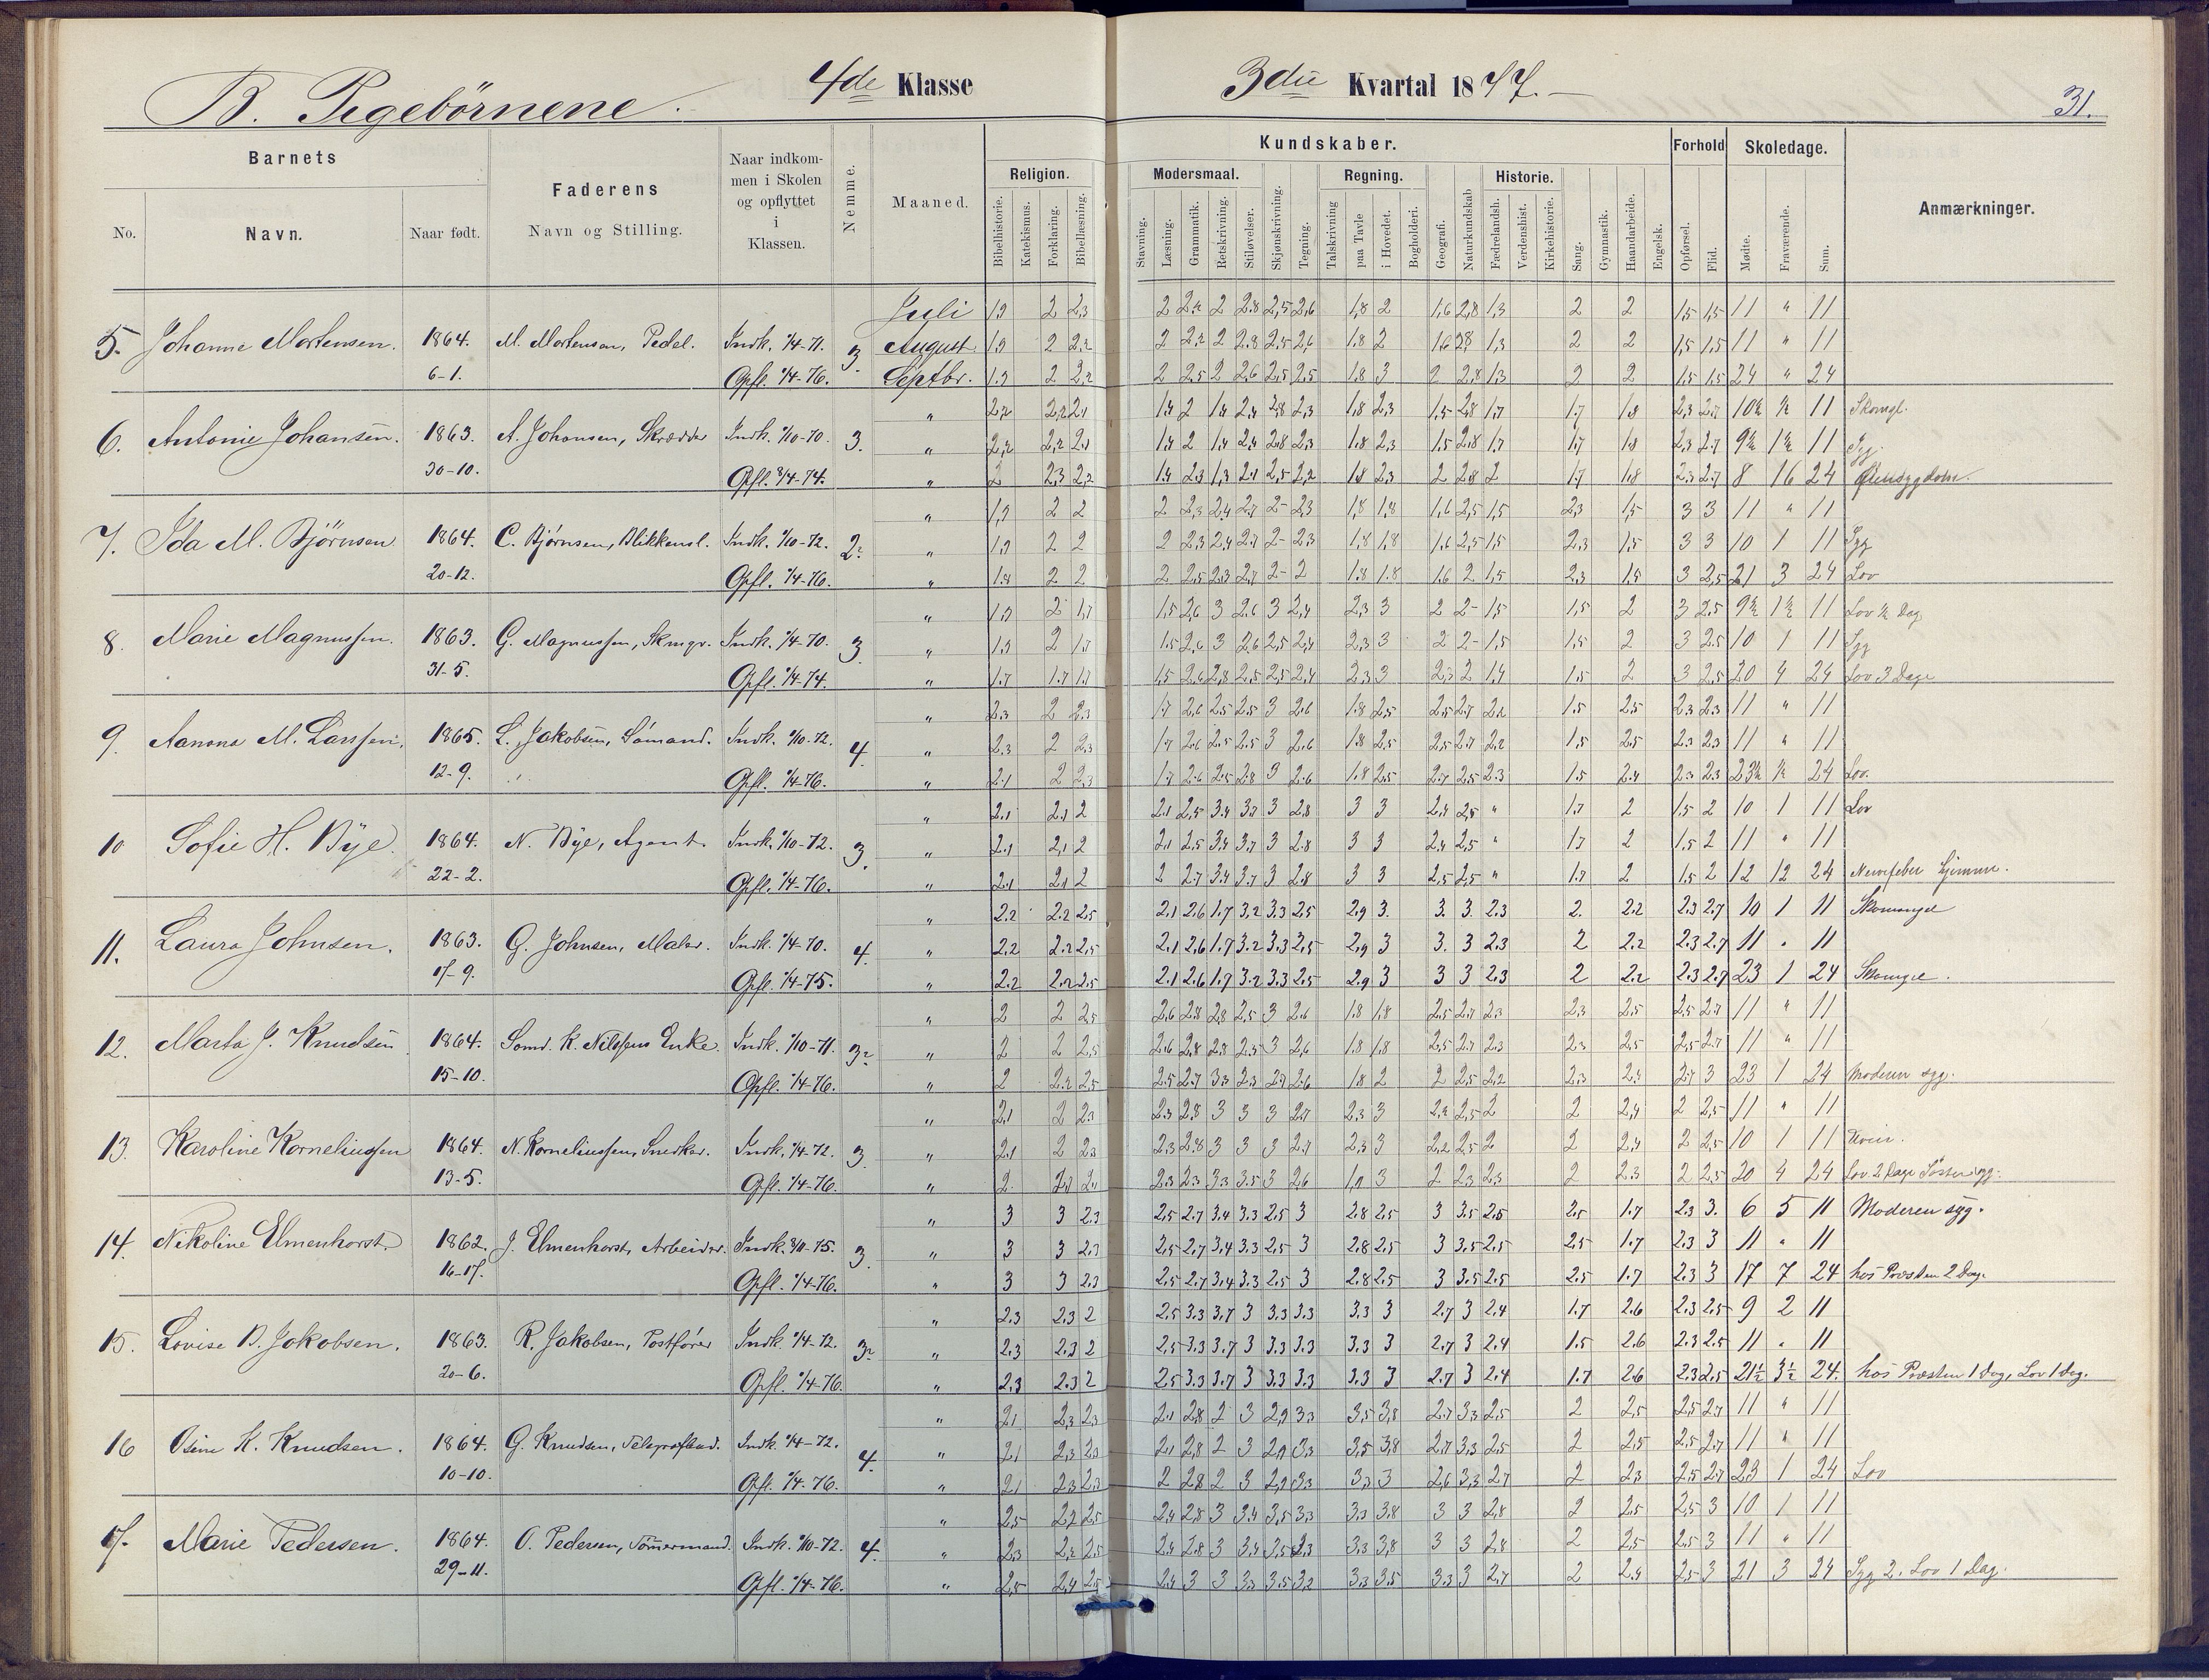 B. Pigebörnene. 4de Klasse 3die Kvartal 1877. 31.
Barnets Faderens Naar indkommen i Skolen og opflyttet i Klassen. Nemme. Maaned. Kundskaber. Forhold Skoledage. Anmærkninger.
Religion. Modersmaal. Regning. Historie.
No. Navn. Naar født. Navn og Stilling. Bibelhistorie. Katekismus. Forklaring. Bibellæsning. Stavning. Læsning. Grammatik. Retskrivning. Stiløvelser. Skjønskrivning. Tegning. Talskrivning paa Tavle i Hovedet. Bogholderi. Geografi. Naturkundskab Fædrelandsh. Verdenshist. Kirkehistorie. Sang. Gymnastik. Haandarbeide. Engelsk. Opførsel. Flid. Mødte. Fraværende. Sum.
Juli 1,9 2 2,3 2 2,2 2 2.8 2,5 2,6 1,8 2 1,6 2,8 1,3 2 2 1,5 1,5 11 " 11
5. Johanne Mortensen. 1864. M. Mortensen, Pedel. Indk. 1/4-71. 3. August 1,9 2 2,2 2 2,2 2 2.8 2,5 2,6 1.8 2 1.6 2.8 1,3 2 2 1,5 1.5 11 " 11
6-1. Opfl. 1/4-76. Septbr. 1.9 2 2,2 2 2.5 2 2.6 2,5 2.5 1.8 3 2 2,8 1.3 2 2 1.5 1.5 24 " 24
" 2,2 2,2 2,1 1.4 2 1.4 2,4 2,8 2,3 1,8 2,3 1,5 2,8 1,7 1.7 1.8 2,3 2.7 10½ ½ 11 Skomgl.
6. Antonie Johansen. 1863. A. Johansen, Skrædder Indk. 1/10-70. 3. " 2,2 2,2 2.1 1.4 2 1.4 2,4 2.8 2,3 1.8 2,3 1.5 2.8 1.7 1.7 1.8 2,3 2.7 9½ 1½ 11 Syg.
30-10. Opfl. 8/4-74. " 2 2,3 2,2 1.4 2.3 1,3 2.1 2,5 2,2 1.8 2.3 2 2.8 2 1.7 1.8 2.3 2.7 8 16 24 Øiensygdom.
" 1,9 2 2 2 2,3 2,4 2.7 2- 2,3 1,8 1,8 1,6 2,5 1,5 2,3 1,5 3 3 11 " 11
7. Ida M. Bjørnsen 1864. C. Bjørnsen, Blikkensl. Indk. 1/10-72. 2. " 1.9 2 2 2 2,3 2,4 2.7 2- 2,3 1.8 1.8 1.6 2,5 1,5 2.3 1,5 3 3 10 1 11 Syg
20-12. Opfl. 1/4-76. " 1.8 2 2 2 2,5 2,3 2,7 2- 2 1.8 1.8 1.6 2 1,5 2.3 1,5 3 2,5 21 3 24 Lov
" 1,9 2 1,7 1,5 2,6 3 2.6 3 2,4 2,3 3 2 2- 1,5 1,5 2 3 2.5 9½ 1½ 11 Lov ½ Dag
8. Marie Magnussen. 1863. G. Magnussen, Skmgr. Indk. 1/4-70. 3. " 1,9 2 1,7 1.5 2,6 3 2.6 2,5 2,4 2,3 3 2 2- 1,5 1,5 2 3 2.5 10 1 11 Syg
31-5. Opfl. 1/4-74. " 1.7 1.7 1.7 1,5 2.6 2,8 2.5 2,5 2.4 2.3 3 2,3 2 1,4 1.5 2 3 2,5 20 4 24 Lov 3 Dage
" 2.3 2 2.3 1.7 2,6 2.5 2.5 3 2.6 1.8 2,5 2,5 2.7 2,2 1.5 2.5 2.3 2.3 11 " 11
9. Aanona M. Larssen. 1865. L. Jakobsen, Sömand. Indk. 1/10-72. 4. " 2.3 2 2.3 1.7 2.6 2.5 2.5 3 2.6 1.8 2.5 2,5 2.7 2.2 1.5 2.5 2.3 2.3 11 " 11
12-9. Opfl. 1/4-76. " 2.1 2 2,3 1.7 2.6 2.5 2.8 3 2.6 1.8 2.5 2.7 2.5 2.3 1.5 2.4 2.3 2.3 23½ ½ 24 Lov.
" 2.1 2.1 2 2.1 2,5 3.4 3.7 3 2.8 3 3 2.4 2.5 " 1.7 2 1.5 2 10 1 11 Lov
10 Sofie H. Bye. 1864. N. Bye, Agent. Indk. 1/10-72. 3. " 2.1 2,1 2 2.1 2.5 3.4 3.7 3 2.8 3 3 2.4 2,5 " 1.7 2 1.5 2 11 " 11
22-2. Opfl. 1/4-76. " 2.1 2.1 2 2 2.7 3.4 3.7 3 2.8 3 3 2,5 2,5 " 1.7 2 1.5 2 12 12 24 Nervefeber hjemme.
" 2.2 2.2 2.5 2.1 2.6 1.7 3.2 3.3 2.5 2.9 3. 3. 3 2.3 2. 2.2 2.3 2.7 10 1 11 Skomangel
11. Laura Johnsen. 1863. G. Johnsen, Maler. Indk. 1/4-70. 4. " 2.2 2.2 2.5 2.1 2.6 1.7 3.2 3.3 2.5 2.9 3 3. 3 2.3 2 2.2 2.3 2.7 11 " 11
17-9. Opfl. 1/4-75. " 2.2 2.2 2.5 2.1 2.6 1.7 3.2 3.3 2.5 2.9 3 3 3 2.3 2 2.2 2.3 2.7 23 1 24 Skomgel.
" 2 2 2.5 2.6 2.8 2,8 2,5 3 2.6 1.8 1.8 2.5 2.7 2.3 2.3 2.5 2,5 2.7 11 " 11
12. Marta J. Knudsen 1864. Sömd. K. Nilssens Enke. Indk. 1/10-71. 3. " 2 2 2.5 2.6 2.8 2.8 2.5 3 2.6 1.8 1.8 2.5 2.7 2.3 2.3 2.5 2,5 2.7 11 " 11
15-10. Opfl. 1/4-76. " 2 2.2 2.5 2.5 2.7 3.3 2.3 2.7 2.6 1.8 2 2 2.5 2.2 2.3 2.4 2.7 3 23 1 24 Moderen syg.
" 2.1 2 2.3 2.3 2.8 3 3 3 2.7 2.3 3 2,2 2.5 2 2 2.4 2 2.5 11 " 11
13. Karoline Korneliussen 1864. N. Korneliussen, Snedker. Indk. 1/4-72. 3. " 2.1 2 2.3 2.3 2.8 3 3 3 2.7 2.3 3 2,2 2.5 2 2 2.4 2 2.5 10 1 11
13-5. Opfl. 1/4-76. " 2 2.3 2.3 3.3 3.5 3 2.6 3 2 2.3 2.3 2 2.3 2 2.5 20 4 24 Lov 2 Dage Söster syg.
" 3 3 2.3 2.5 2.7 3.4 3.3 2.5 3 2.8 2.5 3 3.5 2.5 2.5 1.7 2.3 3. 6 5 11 Moderen syg.
14. Nikoline Elmenhorst. 1862. J. Elmenhorst, Arbeider. Indk. 3/10-75. 3. " 3 3 2.3 2,5 2.7 3.4 3.3 2.5 3 2.8 2.5 3 3.5 2.5 2.5 1.7 2.3 3 11 " 11
16-17. Opfl. 1/4-76. " 3 3 2.3 2.5 2.7 3.4 3.3 2.5 3 2.8 2.5 3 3.5 2.5 2.5 1.7 2.3 3 17 7 24 hos Præsten 2 Dag.
" 2.3 2.3 2 2.5 3.3 3.7 3 3.3 3.3 3.3 3 2.7 3 2.4 1.7 2.6 2.3 2.5 9 2 11
15. Lovise B. Jakobsen. 1863. R. Jakobsen, Postförer Indk. 1/4-72. 3. " 2.3 2.3 2 2.5 3.3 3.7 3 3.3 3.3 3.3 3 2.7 3 2.4 1.5 2.6 2.3 2.5 11 " 11
20-6. Opfl. 1/4-76. " 2.3 2.3 2 2.5 3.3 3.7 3 3.3 3.3 3.3 3 2.7 3 2.4 1.7 2.6 2.3 2.5 21½ 3½ 24. hos Præsten 1 Dag, Lov 1 Dag.
" 2.1 2.3 2.3 2.1 2.8 2 3 2.9 3.3 3,5 3,8 2.7 3.3 2.5 2 2,5 2,5 2.7 11 " 11
16 Osine K. Knudsen. 1864. G. Knudsen, Telegrafbud. Indk. 1/4-72. 4. " 2.1 2.3 2.3 2.1 2,8 2 3 2.9 3.3 3,5 3,8 2.7 3,3 2.5 2 2,5 2,5 2,7 11 " 11
10-10. Opfl. 1/4-76. " 2.1 2.3 2.3 2 2.8 2 3 2,9 3.3 3,3 3 2.6 3,3 2.7 2 2.3 2.5 2.7 23 1 24 Lov
" 2.5 2.2 2.5 2.4 2.8 3 3.4 3,5 3.3 3.3 3.8 3 3 2.8 2 2.5 2.5 3 10 1 11
17. Marie Pedersen. 1864. O. Pedersen, Tömmermand. Indk. 1/10-72. 4. " 2.3 2.2 2.5 2.4 2.8 3 3.4 3,5 3.3 3.3 3,8 3 3 2,8 2 2.5 2.5 3 11 " 11
29-11. Opfl. 1/4-76. " 2.5 2.4 2.5 2.4 3 3 3.3 3.5 3.2 3.3 3.5 3.3 3 2.7 2 2.4 2.5 3 21 3 24 Syg 2. Lov 1 Dag.